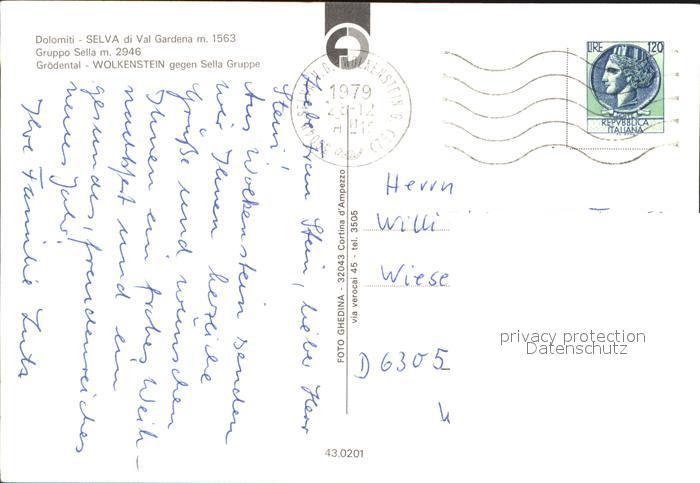 Dolomiti - SELVA di Val Gardena m. 1563
Gruppo Sella m. 2946
Grödental - WOLKENSTEIN gegen Sella Gruppe
Liebe Frau Stein, lieber Herr
Stein!
Aus Wolkenstein senden
wir Ihnen herzliche
Grüße und wünschen
Ihnen ein frohes Weih-
nachtsfest und ein
gesundes, freudenreiches
neues Jahr!
Ihre Familie Lutz
FOTO GHEDINA - 32043 Cortina d'Ampezzo
via verocai 45 - tel. 3505
WOLKENSTEIN
1979
LIRE 120
REPVBBLICA
ITALIANA
Herrn
Willi
Wiese
D 6305
privacy protection
Datenschutz
43.0201